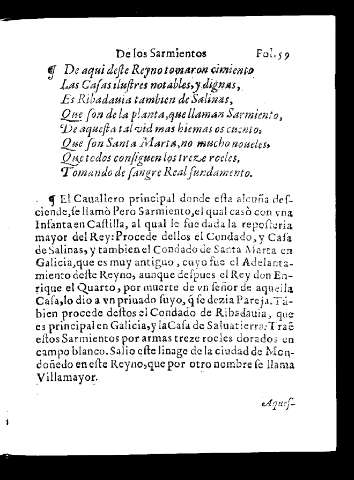 De los Sarmientos Fol. 59
¶ De aqui deste Reyno tomaron cimiento
Las Casas ilustres notables, y dignas,
Es Ribadauia tambien de Salinas,
Que son de la planta, que llaman Sarmiento,
De aquesta tal vid mas hiemas os cuento,
Que son Santa Marta, no mucho noueles,
Que todos consiguen los treze roeles,
Tomando de sangre Real fundamento.
¶ El Cauallero principal donde esta alcuña des-
ciende, se llamò Pero Sarmiento, el qual casò con vna
Infanta en Castilla, al qual le fue dada la reposteria
mayor del Rey: Procede dellos el Condado, y Casa
de Salinas, y tambien el Condado de Santa Marta en
Galicia, que es muy antiguo, cuyo fue el Adelanta-
miento deste Reyno, aunque despues el Rey don En-
rique el Quarto, por muerte de vn señor de aquella
Casa, lo dio a vn priuado suyo, q̃ se dezia Pareja. Tã-
bien procede destos el Condado de Ribadauia, que
es principal en Galicia, y la Casa de Saluatierra: Traẽ
estos Sarmientos por armas treze roeles dorados en
campo blanco. Salio este linage de la ciudad de Mon-
doñedo en este Reyno, que por otro nombre se llama
Villamayor.
Aques-